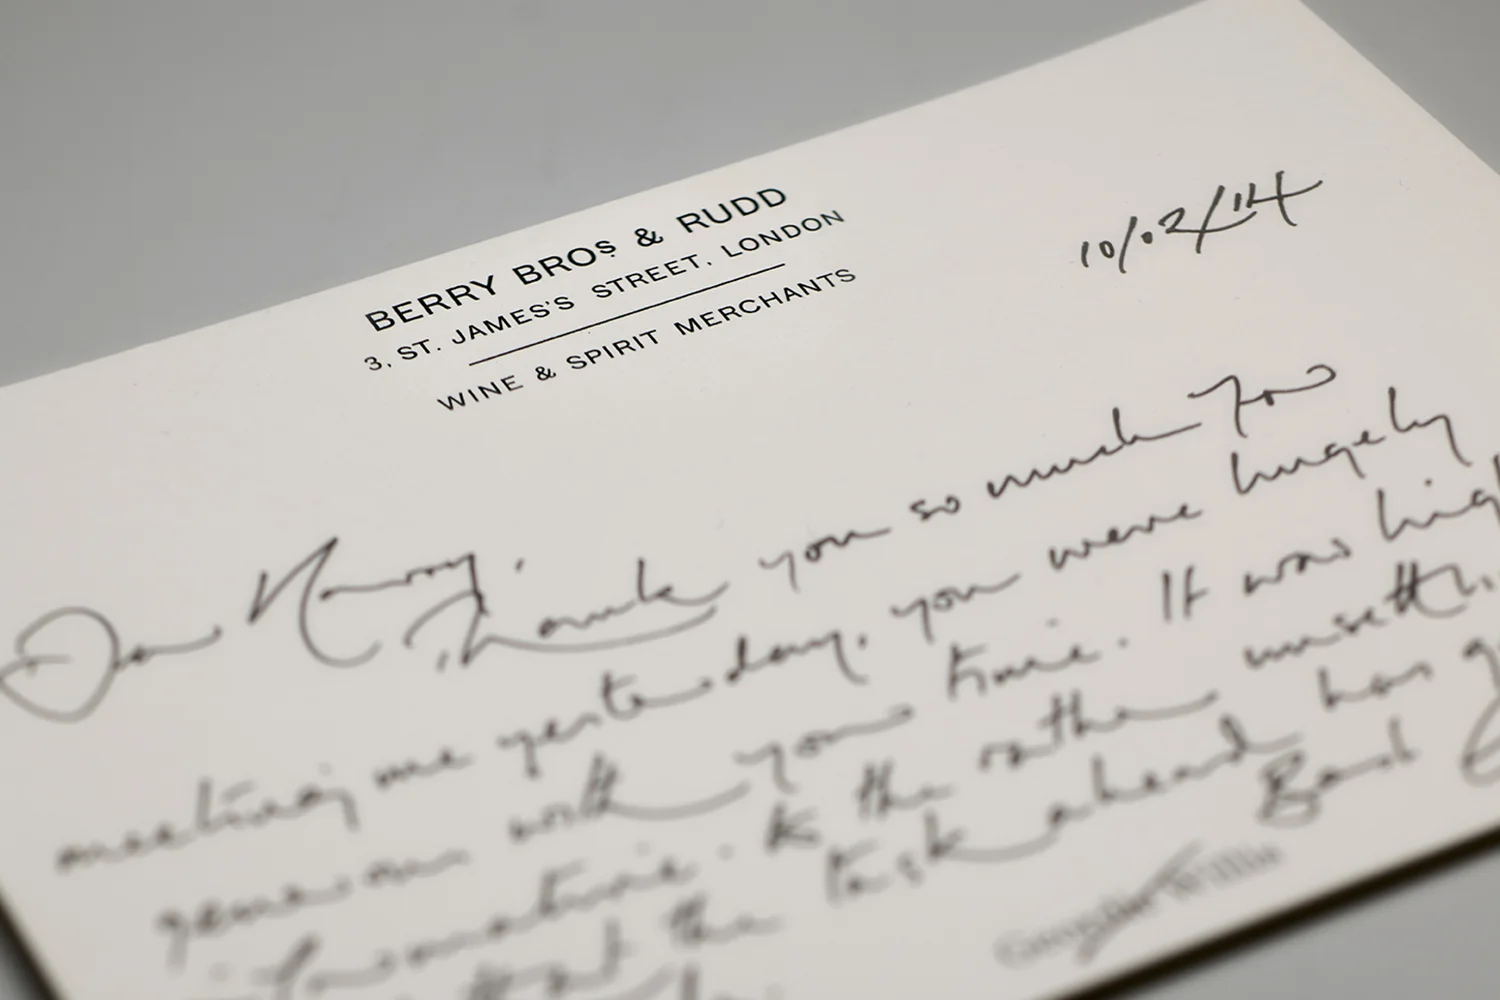 BERRY BROS & RUDD
3, ST. JAMES'S STREET, LONDON
WINE & SPIRIT MERCHANTS
10/02/14
Dear
Thank you so much for
meeting me yesterday, you were hugely
generous with your time. It was
informative. the rather
that the task ahead has
Willis